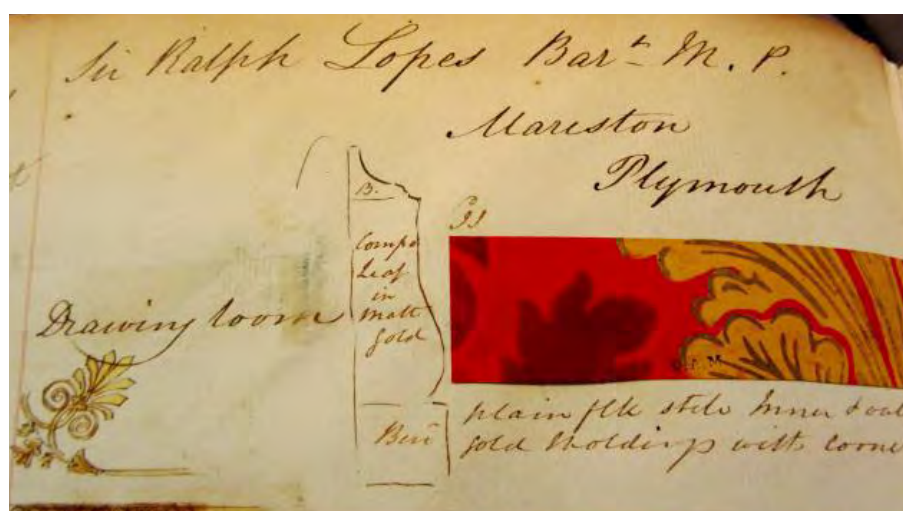 Sir Ralph Lopes Bart M. P.
Mariston
Plymouth
B.
Compo
Leaf
in
Matt
Gold
Drawing room
plain flk stile Inner & out
gold Moldings with corne